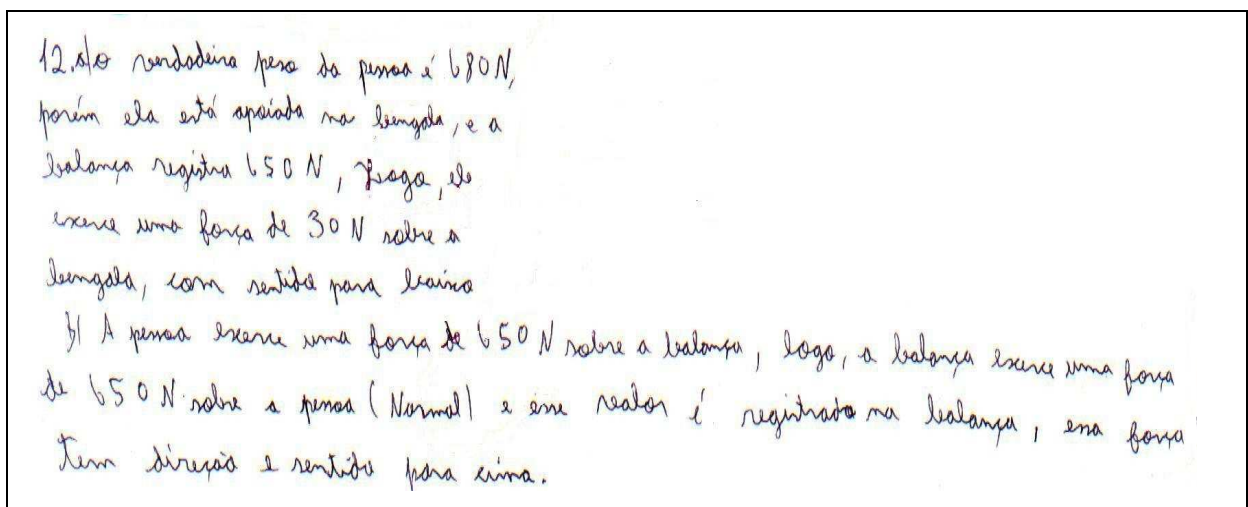 12.a) O verdadeiro peso da pessoa é 680N,
porém ela está apoiada na bengala, e a
balança registra 650 N, Logo, ele
exerce uma força de 30 N sobre a
bengala, com sentido para baixo
b) A pessoa exerce uma força de 650 N sobre a balança, logo, a balança exerce uma força
de 650 N sobre a pessoa (Normal) e esse valor é registrado na balança, essa força
tem direção e sentido para cima.